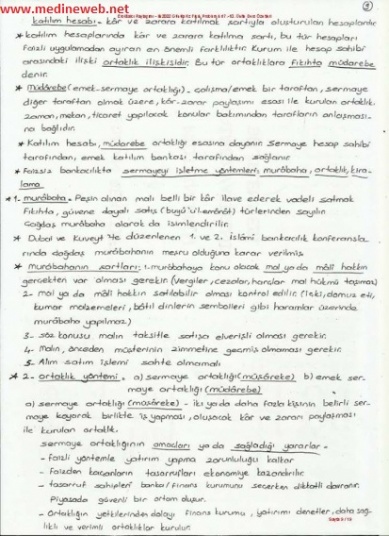 www.medineweb.net
katılım hesabı - kâr ve zarara katılmak şartıyla oluşturulan hesaplardır
* katılım hesaplarında kâr ve zarara katılma şartı, bu tür hesapları
faizli uygulamadan ayıran en önemli farklılıktır. Kurum ile hesap sahibi
arasındaki ilişki ortaklık ilişkisidir. Bu tür ortaklıklara fıkıhta müdarebe
denir.
* Müdârebe (emek-sermaye ortaklığı) - çalışma/emek bir taraftan, sermaye
diğer taraftan olmak üzere, kâr-zarar paylaşımı esası ile kurulan ortaklık.
zaman, mekan, ticaret yapılacak konular bakımından tarafların anlaşması-
na bağlıdır.
* Katılım hesabı, müdarebe ortaklığı esasına dayanır sermaye hesap sahibi
tarafından, emek katılım bankası tarafından sağlanır
* Faizsiz bankacılıkta sermayeyi işletme yöntemleri, murâbaha, ortaklık, kira-
lama.
* 1- murâbaha - Peşin alınan malı belli bir kâr ilave ederek vadeli satmak
Fıkıhta, güvene dayalı satış (buyû'ul-emânât) türlerinden sayılır
Çağdaş murâbaha olarak da isimlendirilir.
* Dubai ve Kuveyt 'te düzenlenen 1. ve 2. İslâmi bankacılık konferansla-
rında çağdaş murâbahanın meşru olduğuna karar verilmiş
* murâbahanın şartları: 1. murâbahaya konu olacak mal ya da mâlî hakkın
gerçekten var olması gerekir (Vergiler, cezalar, harçlar mal hükmü taşımaz)
2- mal ya da mâlî hakkın satılabilir olması kontrol edilir. (İçki, domuz eti,
kumar malzemeleri, bâtıl dinlerin sembolleri gibi haramlar üzerinde
murâbaha yapılmaz)
3- söz konusu malın taksitle satışa elverişli olması gerekir.
4- Malın, önceden müşterinin zimmetine geçmiş olmaması gerekir.
5- Alım satım işlemi sahte olmamalı
* 2- ortaklık yöntemi - a) sermaye ortaklığı (müşâreke) b) emek ser-
maye ortaklığı (müdârebe)
a) sermaye ortaklığı (müşâreke) - iki ya da daha fazla kişinin belirli ser-
maye koyarak birlikte iş yapması, oluşacak kâr ve zararı paylaşması
ile kurulan ortaklık.
sermaye ortaklığının amaçları ya da sağladığı yararlar -
- faizli yöntemle yatırım yapma zorunluluğu kalkar
- Faizden kaçanların tasarrufları ekonomiye kazandırılır.
- tasarruf sahipleri banka/finans kurumunu seçerken dikkatli davranır.
Piyasada güvenli bir ortam oluşur.
- Ortaklığın yetkilerinden dolayı finans kurumu, yatırımı denetler, daha sağ-
lıklı ve verimli ortaklıklar kurulur.